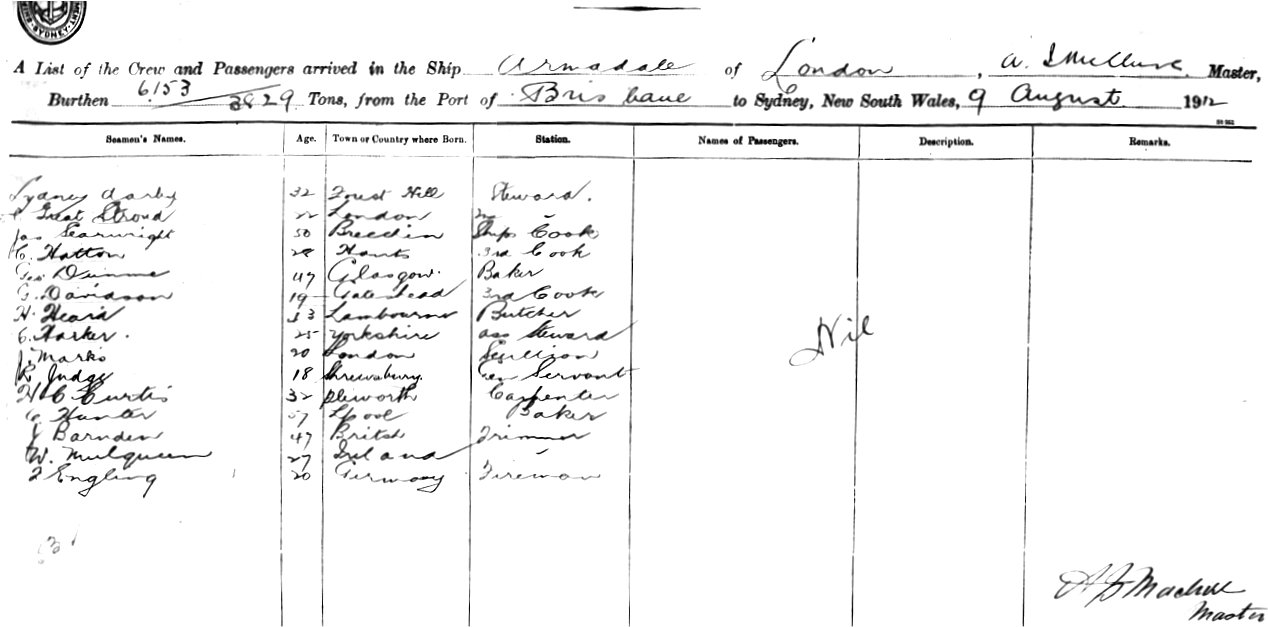 SYDNEY
A List of the Crew and Passengers arrived in the Ship Armadale of London, A. Master,
Burthen 6153 3829 Tons, from the Port of Brisbane to Sydney, New South Wales, 9 August 1912
Seamen's Names. Age. Town or Country where Born. Station. Names of Passengers. Description. Remarks.
Sydney Darby 32 Forest Hill Steward.
Great Stroud 22 London 2
Jas Searwright 50 Breedin Ships Cook
C. Hatton 28 Hants 3rd Cook
Geo Dunne 47 Glasgow. Baker
G. Davidson 19 Gateshead 3rd Cook
H. Heard 33 Lambourne Butcher
C. Harker. 25 Yorkshire ass Steward
J. Marks 20 London Scullion
Nil
R Judge 18 Shrewsbury. Gen Servant
H C Curtis 32 Carpenter
C Hunter 57 Lpool Baker
J Barnden 47 Britsh Trimmer
W. Mulqueen 27 Ireland
F Engling 20 Germany Fireman
Master